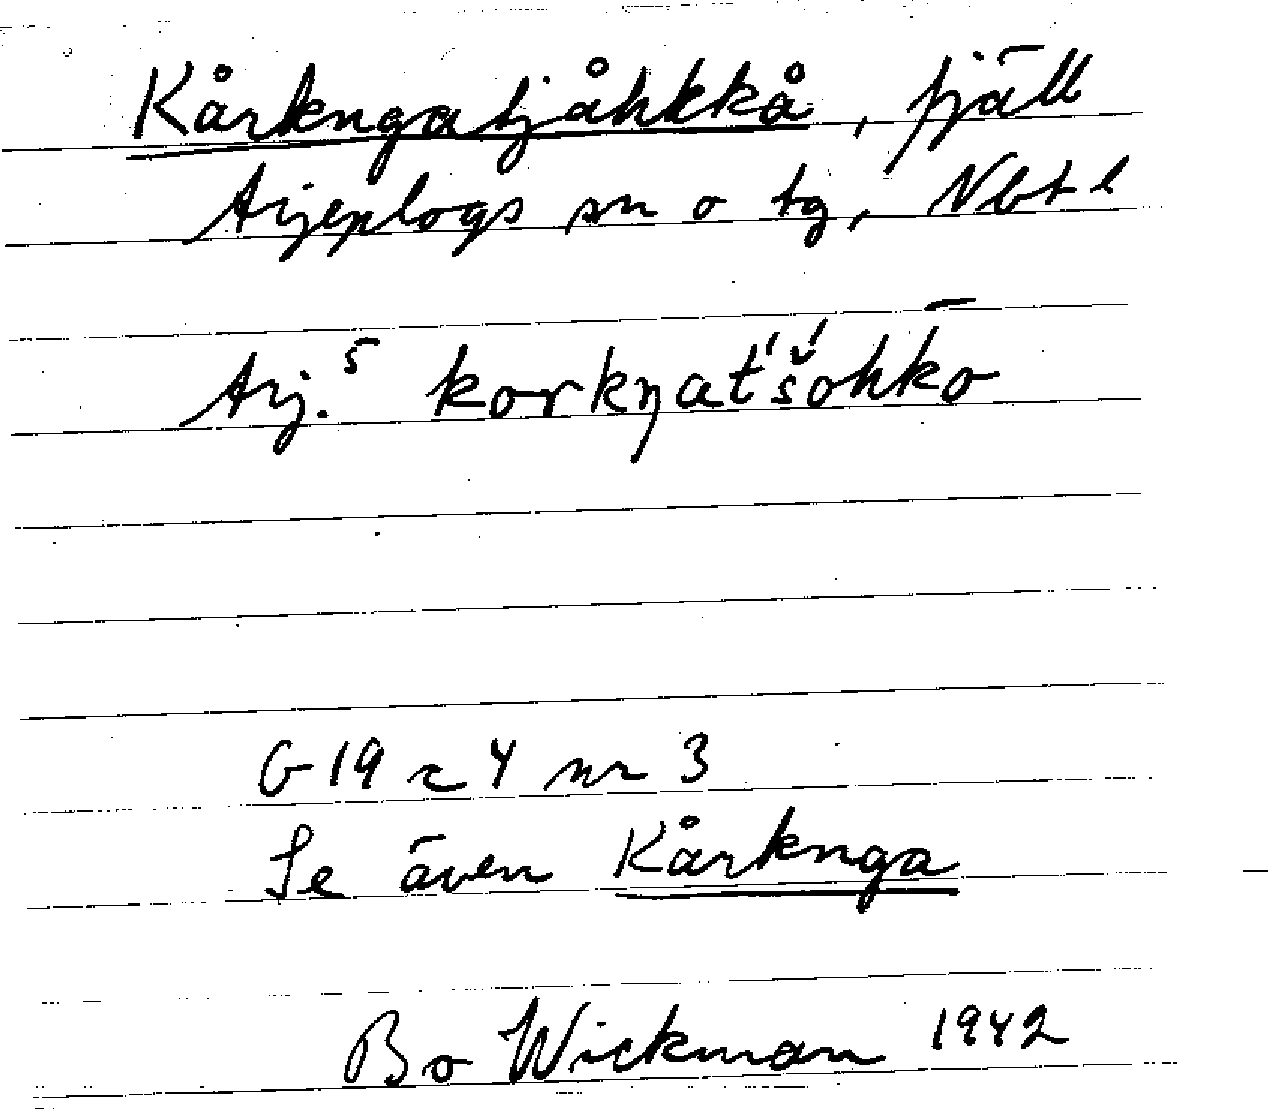 Kårkngatjåhkkå, fjäll
Arjeplogs sn o tg, Nbt l
Arj.⁵ korkŋat́š́ohk̄o
G 19 c 4 nr 3
Se även Kårknga
Bo Wickman 1942